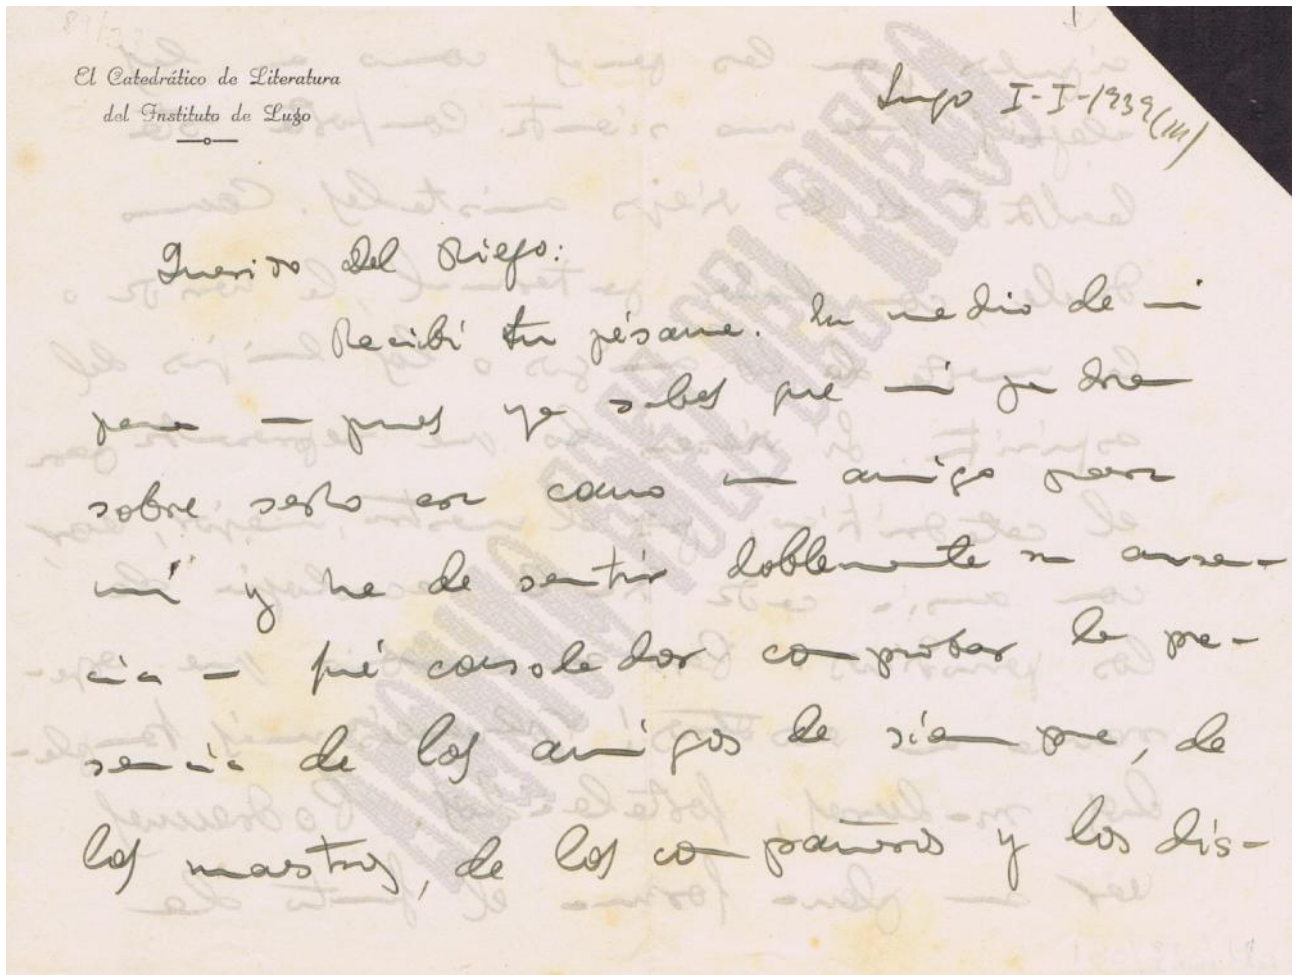 El Catedrático de Literatura
del Instituto de Lugo
Lugo I-I-1939 (III)
Querido Del Riego:
Recibí tu pésame. En medio de mi
pena — pues ya sabes que mi padre
sobre serlo era como un amigo para
mí y he de sentir doblemente su ausen-
cia — fué consolador comprobar la pre-
sencia de los amigos de siempre, de
los maestros, de los compañeros y los dis-